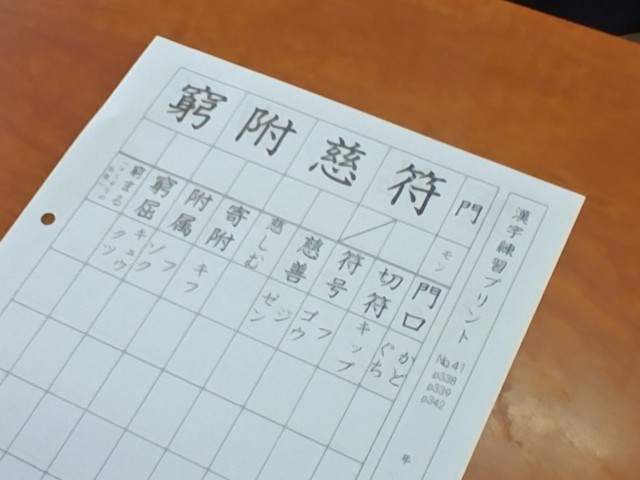 漢字練習プリント
No.41
p338
p339
p342
年
門
モン
門口
かど
ぐち
符
切符
キップ
符号
フ
ゴウ
慈
慈善
ジ
ゼン
慈しむ
附
寄附
キフ
附属
フ
ゾク
窮
窮屈
キュウ
クツ
窮まる